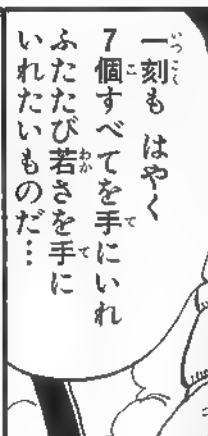 一刻も はやく
7個すべてを手にいれ
ふたたび若さを手に
いれたいものだ…